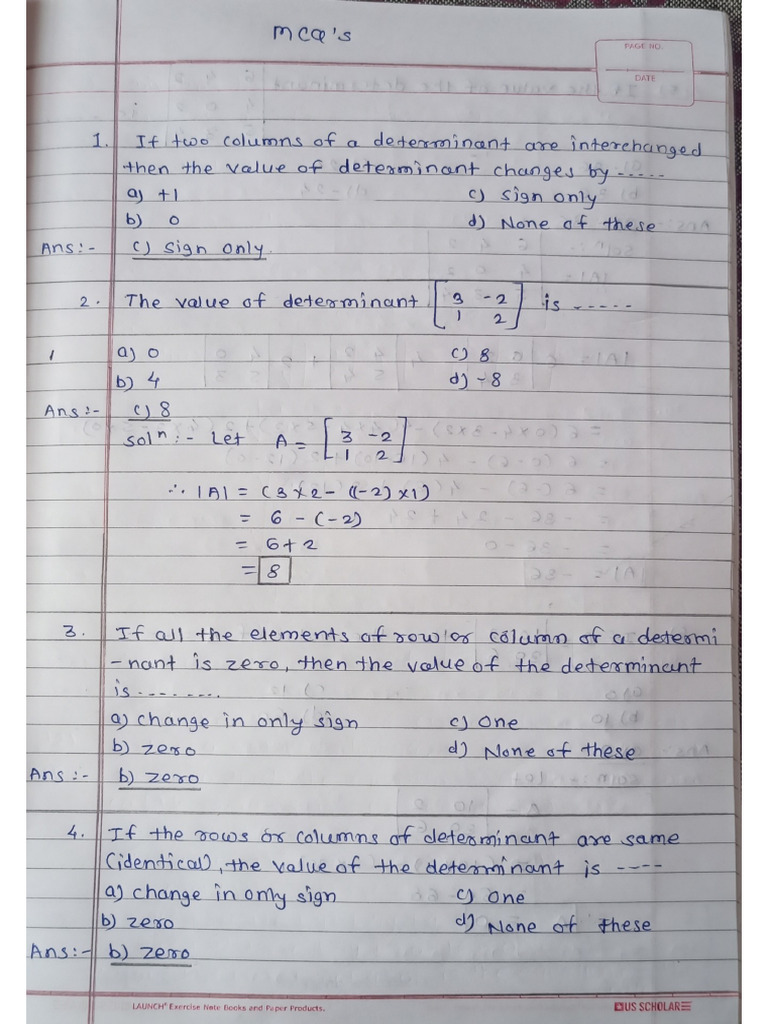 MCQ's
PAGE NO.
DATE
1. If two columns of a determinant are interchanged
then the value of determinant changes by .....
a) +1 c) sign only
b) 0 d) None of these
Ans:- c) sign only
2. The value of determinant [3 -2 is .....
1 2]
1 a) 0 c) 8
b) 4 d) -8
Ans:- c) 8
solⁿ:- Let A = [3 -2
1 2]
∴ |A| = (3×2 - ((-2)×1)
= 6 - (-2)
= 6+2
= 8
3. If all the elements of row or column of a determi
-nant is zero, then the value of the determinant
is ........
a) change in only sign c) One
b) zero d) None of these
Ans:- b) zero
4. If the rows or columns of determinant are same
(identical), the value of the determinant is ----
a) change in only sign c) One
b) zero d) None of these
Ans:- b) zero
LAUNCH® Exercise Note Books and Paper Products.
US SCHOLAR